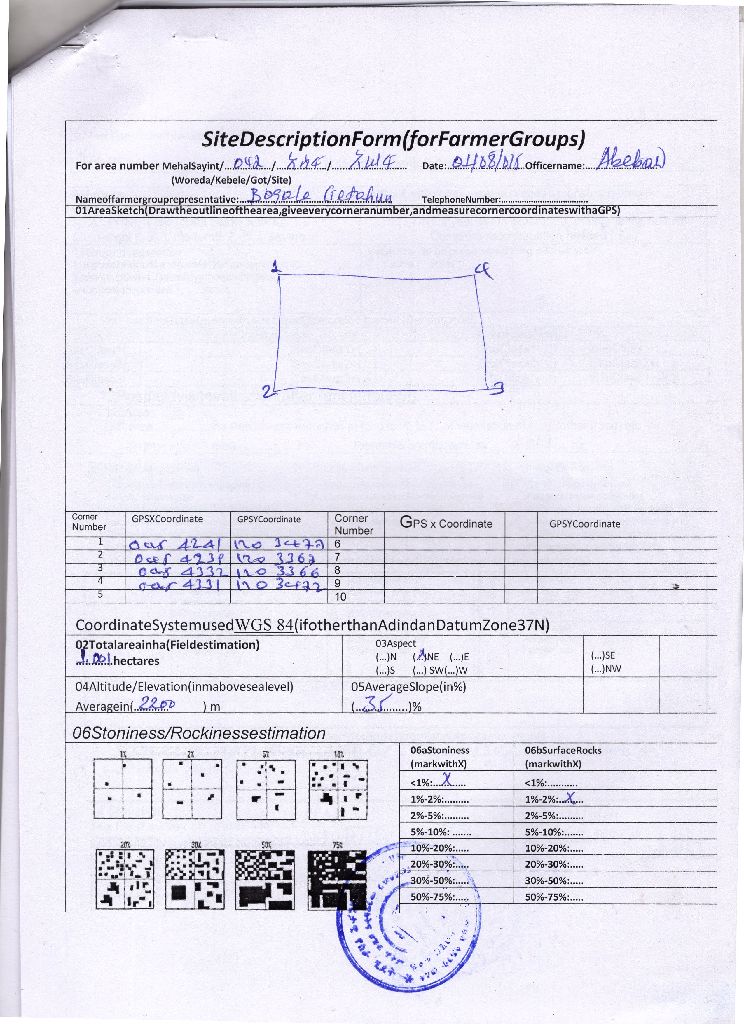 SiteDescriptionForm(forFarmerGroups)
For area number MehalSayint/..042../......../........ Date:.01/08/015.Officername:..Abebaw
(Woreda/Kebele/Got/Site)
Nameoffarmergrouprepresentative:.Bogale Getahun TelephoneNumber:..............................
01AreaSketch(Drawtheoutlineofthearea,giveeverycorneranumber,andmeasurecornercoordinateswithaGPS)
1 4
2 3
Corner Number GPSXCoordinate GPSYCoordinate Corner Number GPS x Coordinate GPSYCoordinate
1 4241 6
2 4239 3363 7
3 4332 3366 8
4 4331 3472 9
5 10
CoordinateSystemused WGS 84(ifotherthanAdindanDatumZone37N)
02Totalareainha(Fieldestimation) 03Aspect
1.001.hectares (...)N (X)NE (...)E (...)SE
(...)S (...) SW(...)W (...)NW
04Altitude/Elevation(inmabovesealevel) 05AverageSlope(in%)
Averagein(..2200 ) m (..35........)%
06Stoniness/Rockinessestimation
1% 2% 5% 10%
06aStoniness 06bSurfaceRocks
(markwithX) (markwithX)
<1%:..X.... <1%:..........
1%-2%:......... 1%-2%:..X...
2%-5%:......... 2%-5%:.........
5%-10%: ....... 5%-10%:.......
20% 30% 50% 75%
10%-20%:..... 10%-20%:.....
20%-30%:..... 20%-30%:.....
30%-50%:..... 30%-50%:.....
50%-75%:..... 50%-75%:.....